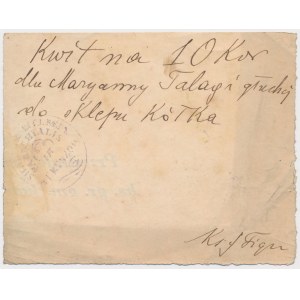 Kwit na 10 Kor
dla Maryanny Talagi głuchej
do sklepu Kółka
Ks J Figu